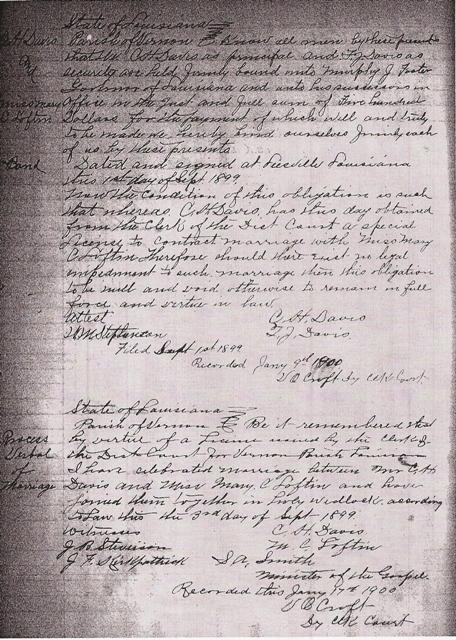 State of Louisiana
C.H. Davis Parish of Vernon Know all men by these presents
that We C.H. Davis as principal and F.J. Davis as
security are held firmly bound unto Murphy J. Foster
Miss Mary Governor of Louisiana and unto his successors in
C Loftin office in the just and full sum of Five hundred
Dollars for the payment of which well and truly
to be made we hereby bind ourselves firmly each
of us by these presents
Bond Dated and signed at Leesville Louisiana
this 1st day of Sept 1899.
Now the condition of this obligation is such
that whereas, C.H. Davis, has this day obtained
from the Clerk of the Dist Court a special
License to contract marriage with Miss Mary
C Loftin therefore should there exist no legal
impediment to such marriage then this obligation
to be null and void otherwise to remain in full
force and virtue in law
Attest C. H. Davis
W.M. Stephenson F. J. Davis.
Filed Sept 1st 1899
Recorded Jany 9th 1900
V O Croft Dy Clk Court.
State of Louisiana
Parish of Vernon Be it remembered that
Process by virtue of a License issued by the Clerk of
Verbal the Dist Court for Vernon Parish Louisiana
of I have celebrated marriage between Mr C.H.
Marriage Davis and Miss Mary, C Loftin and have
joined them together in holy wedlock, according
to law this the 3rd day of Sept 1899.
Witnesses C. H. Davis
J. B. Stevenson M. C. Loftin
J. F. Kirkpatrick S A, Smith
Minister of the Gospel.
Recorded this Jany 17th 1900
V O Croft
Dy Clk Court